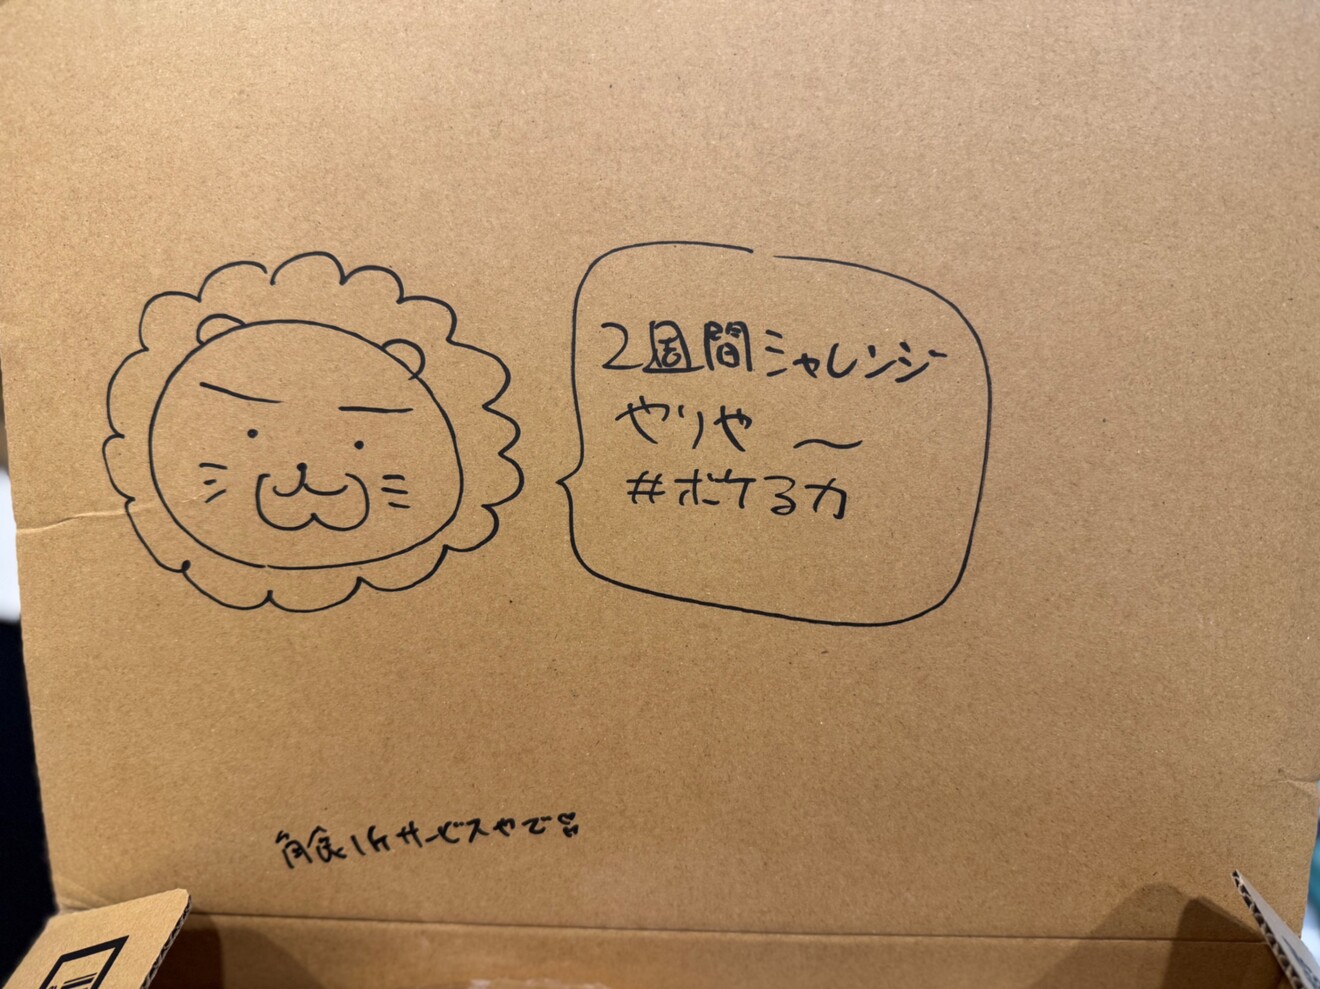 2週間ミャレンジ
やりや〜
#ボケる力
角食1ケサービスやで